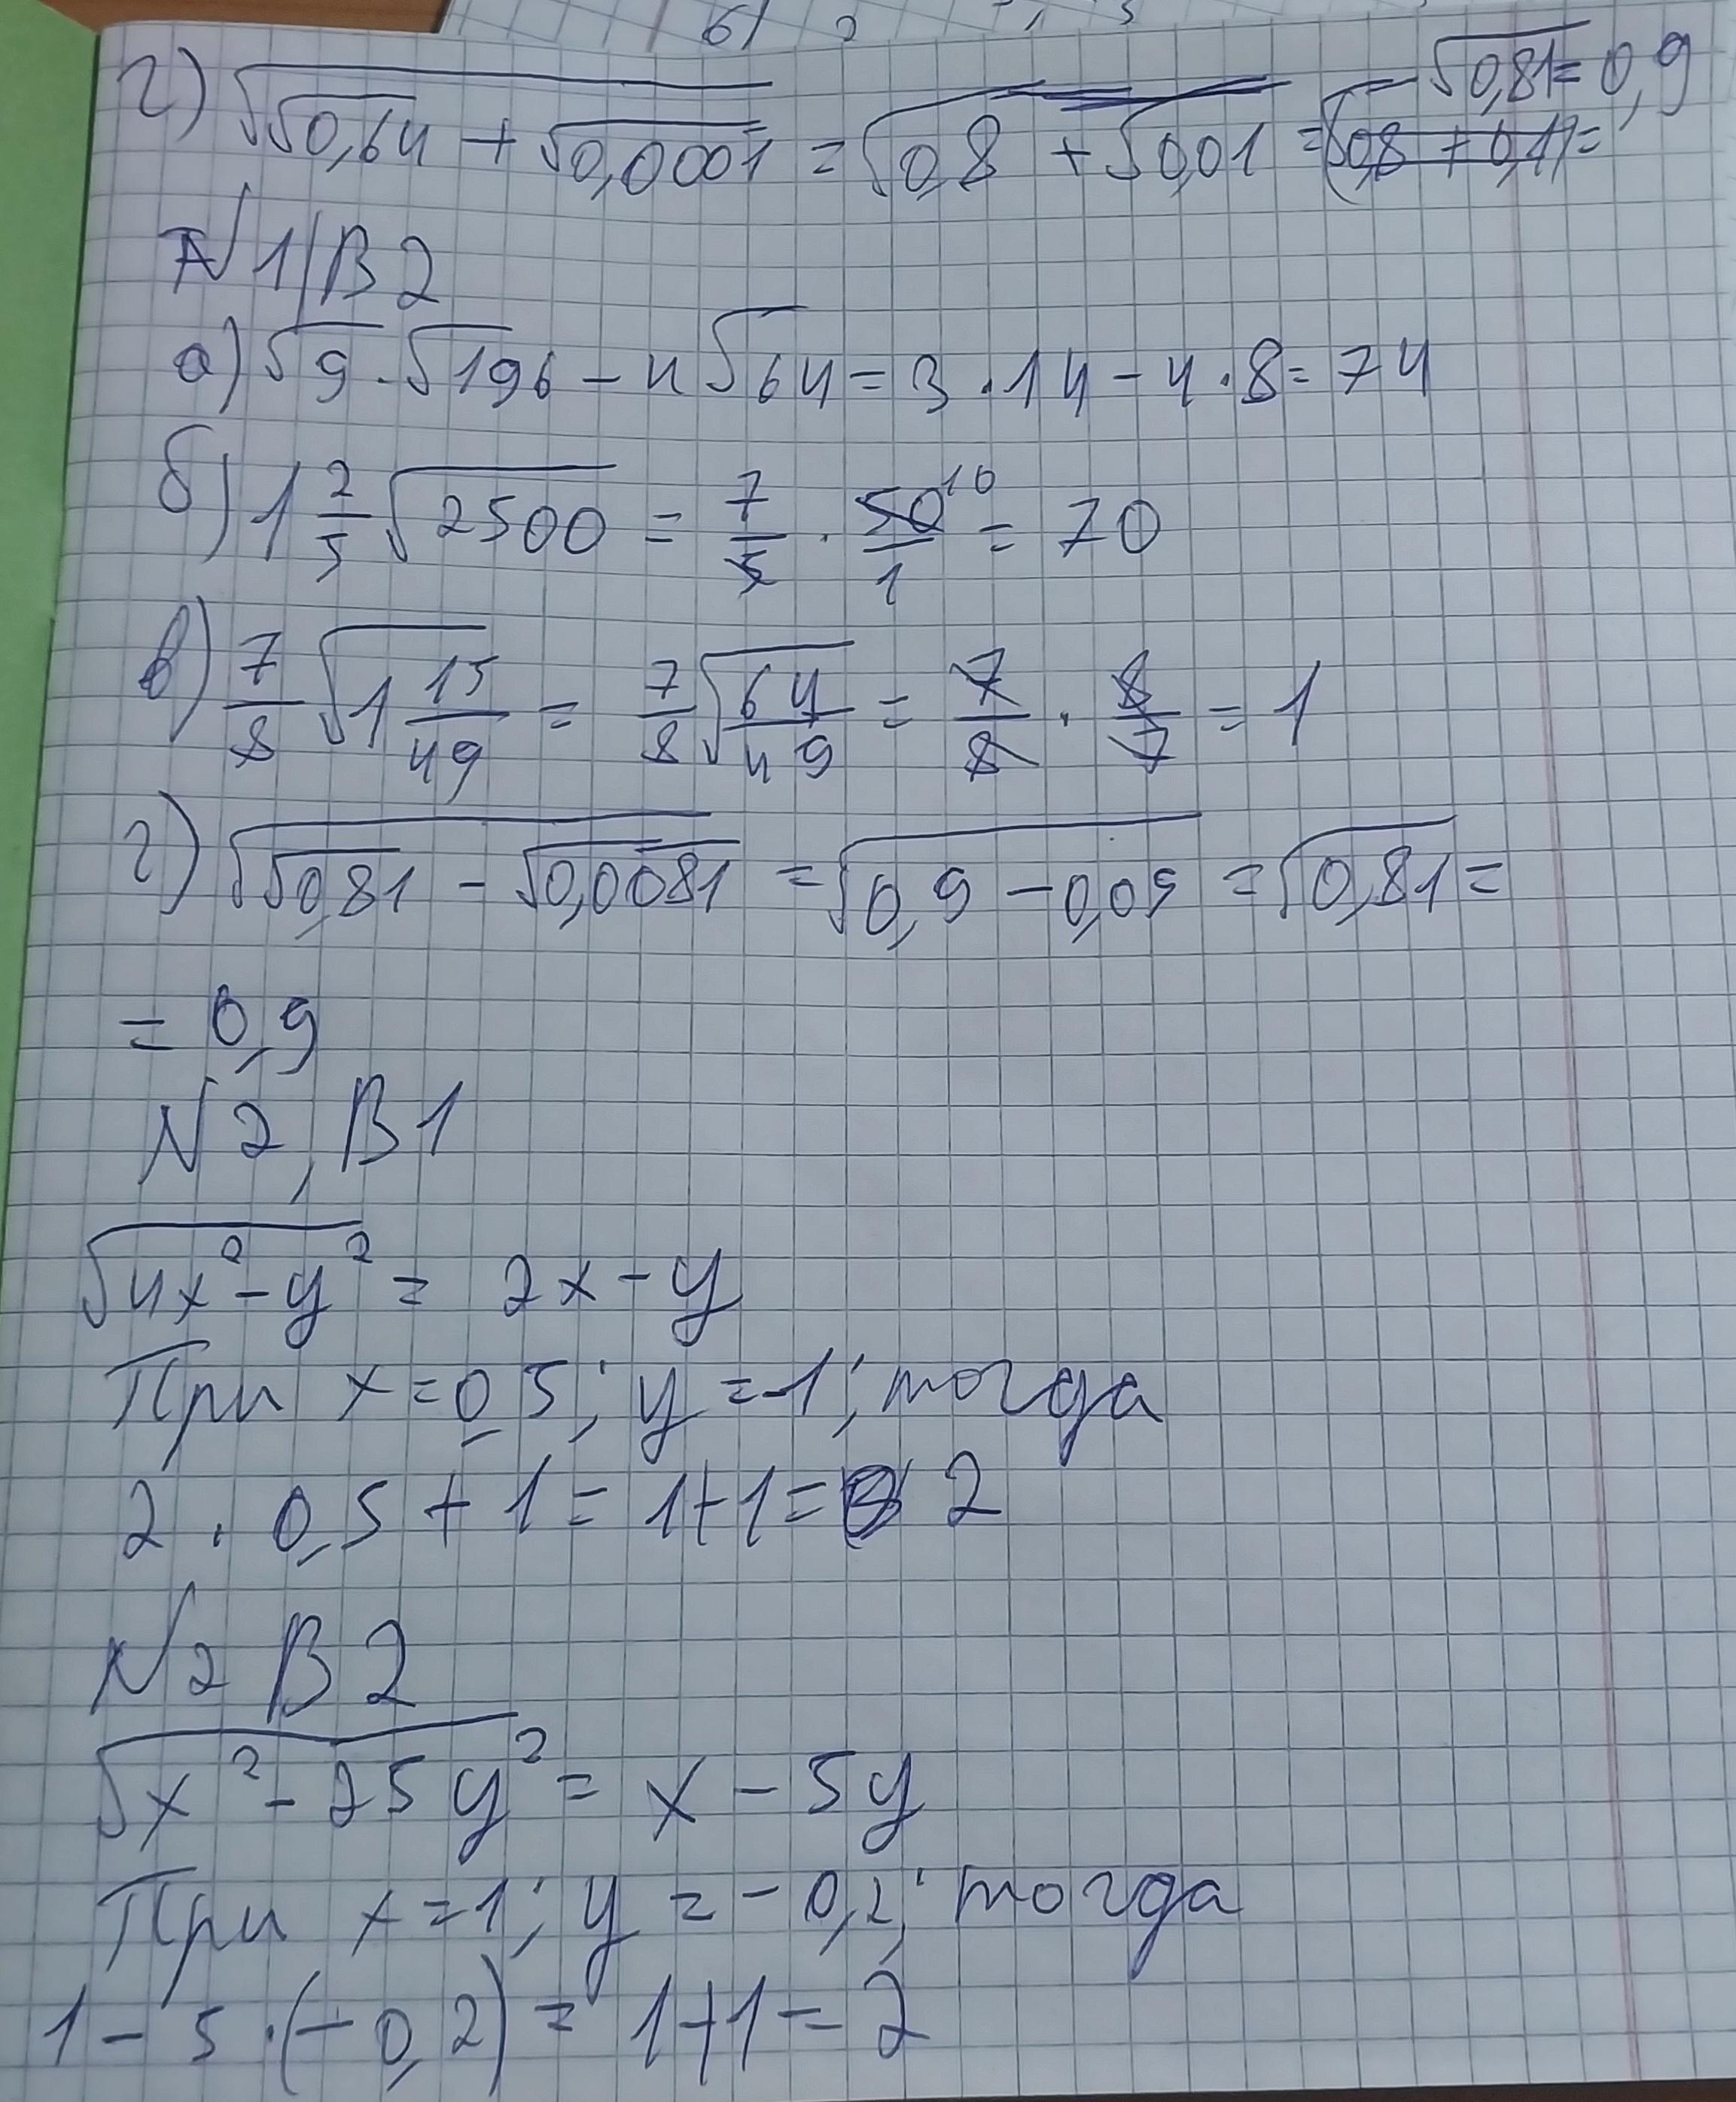 б)
г) √(√0,64 + √0,0001) = √(0,8 + √0,01) = √(0,8 + 0,1) = √0,81 = 0,9
N1/В2
а) √9 · √196 - 4√64 = 3 · 14 - 4 · 8 = 74
б) 1 2/5 √2500 = 7/5 · 50/1 10 = 70
в) 7/8 √(1 15/49) = 7/8 √(64/49) = 7/8 · 8/7 = 1
г) √(√0,81 - √0,0081) = √(0,9 - 0,09) = √0,81 =
= 0,9
N2, В1
√(4x² - y²) = 2x - y
При x = 0,5; y = -1; тогда
2 · 0,5 + 1 = 1 + 1 = 2
N2 В2
√(x² - 25y²) = x - 5y
При x = 1; y = -0,2; тогда
1 - 5 · (-0,2) = 1 + 1 = 2